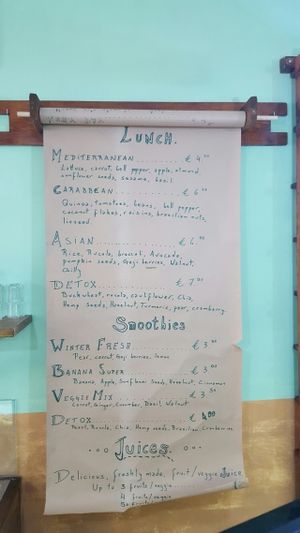 LUNCH.
MEDITERRANEAN ............ € 4
Lettuce, carrot, bell pepper, apple, almond
sunflower seeds, sesame, basil
CARABBEAN ............ € 6
Quinoa, tomatoes, beans, bell pepper,
coconut flakes, raisins, brasilian nuts,
linseed.
ASIAN ............ € 6
Rice, Rucola, broccoli, Avocado,
pumpkin seeds, Goji berries, Walnut,
Chilly
DETOX ............ € 7
Buckwheat, rucola, cauliflower, Chia,
Hemp seeds, Hazelnut, Turmeric, pear, cranberry
Smoothies
WINTER FRESH ............ € 3
Pear, carrot, Goji berries, lemon
BANANA SUPER ............ € 3
Banana, Apple, Sunflower Seeds, Hazelnut, Cinnamon
VEGGIE MIX ............ € 3.50
Carrot, Ginger, Cucumber, Basil, Walnut
DETOX ............ € 4.00
Rucola, Chia, Hemp seeds, Brasilian, Cranberries
Juices.
Delicious, freshly made, fruit/veggie Juice
Up to 3 fruits/veggie
4 fruits/veggie